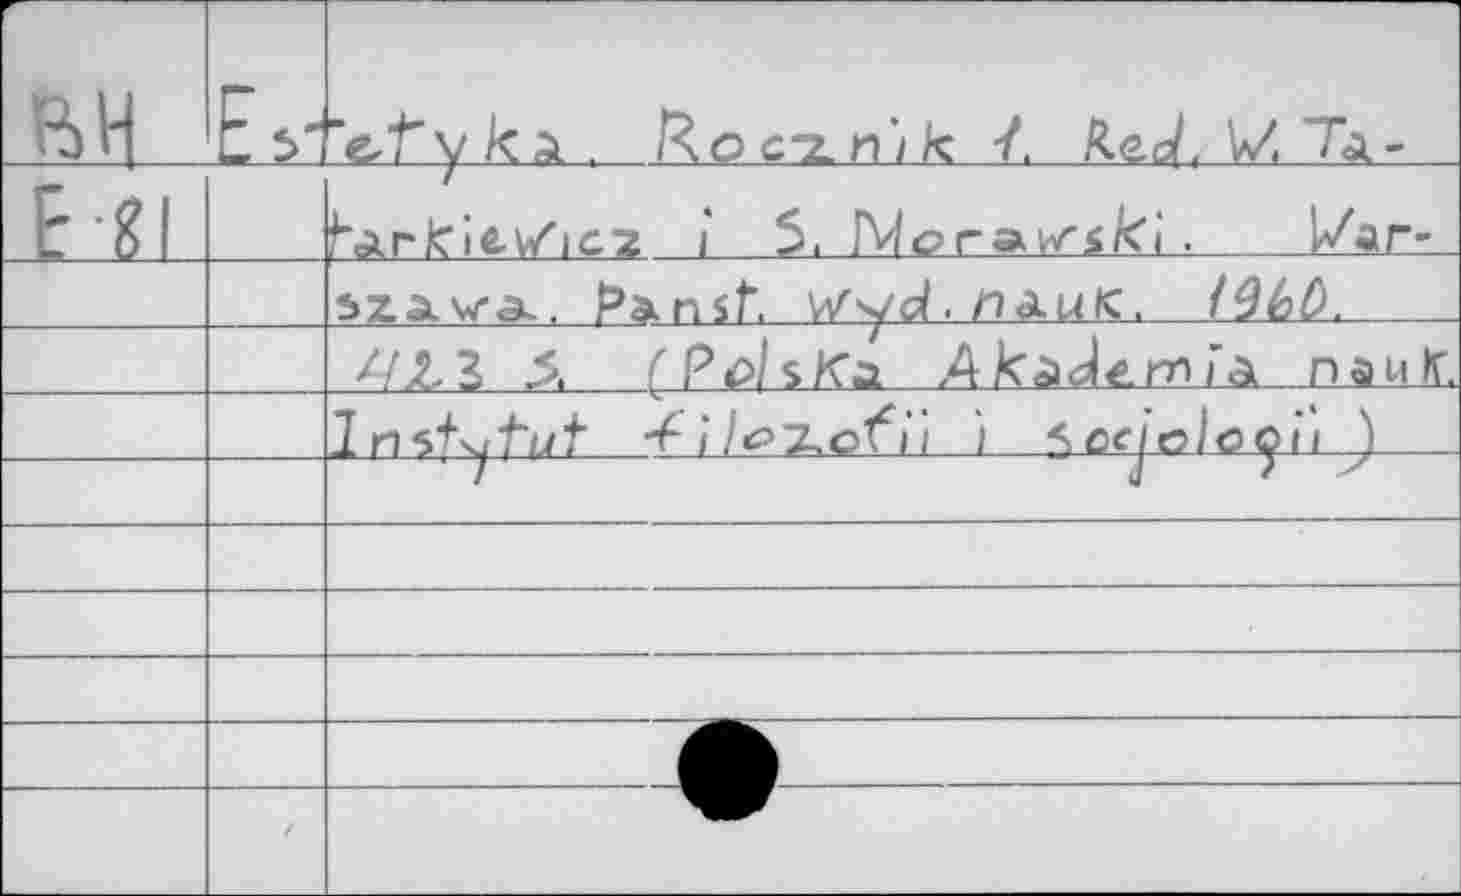 BH Estetyka. Rocznik 1. Red. W. Ta-
E 81 tarkiewicz i S. Morawski. War-
szawa. Panst. Wyd. nauk. 1960.
423 S. (Polska Akademia nauk.
Instytut filozofii i socjologii)